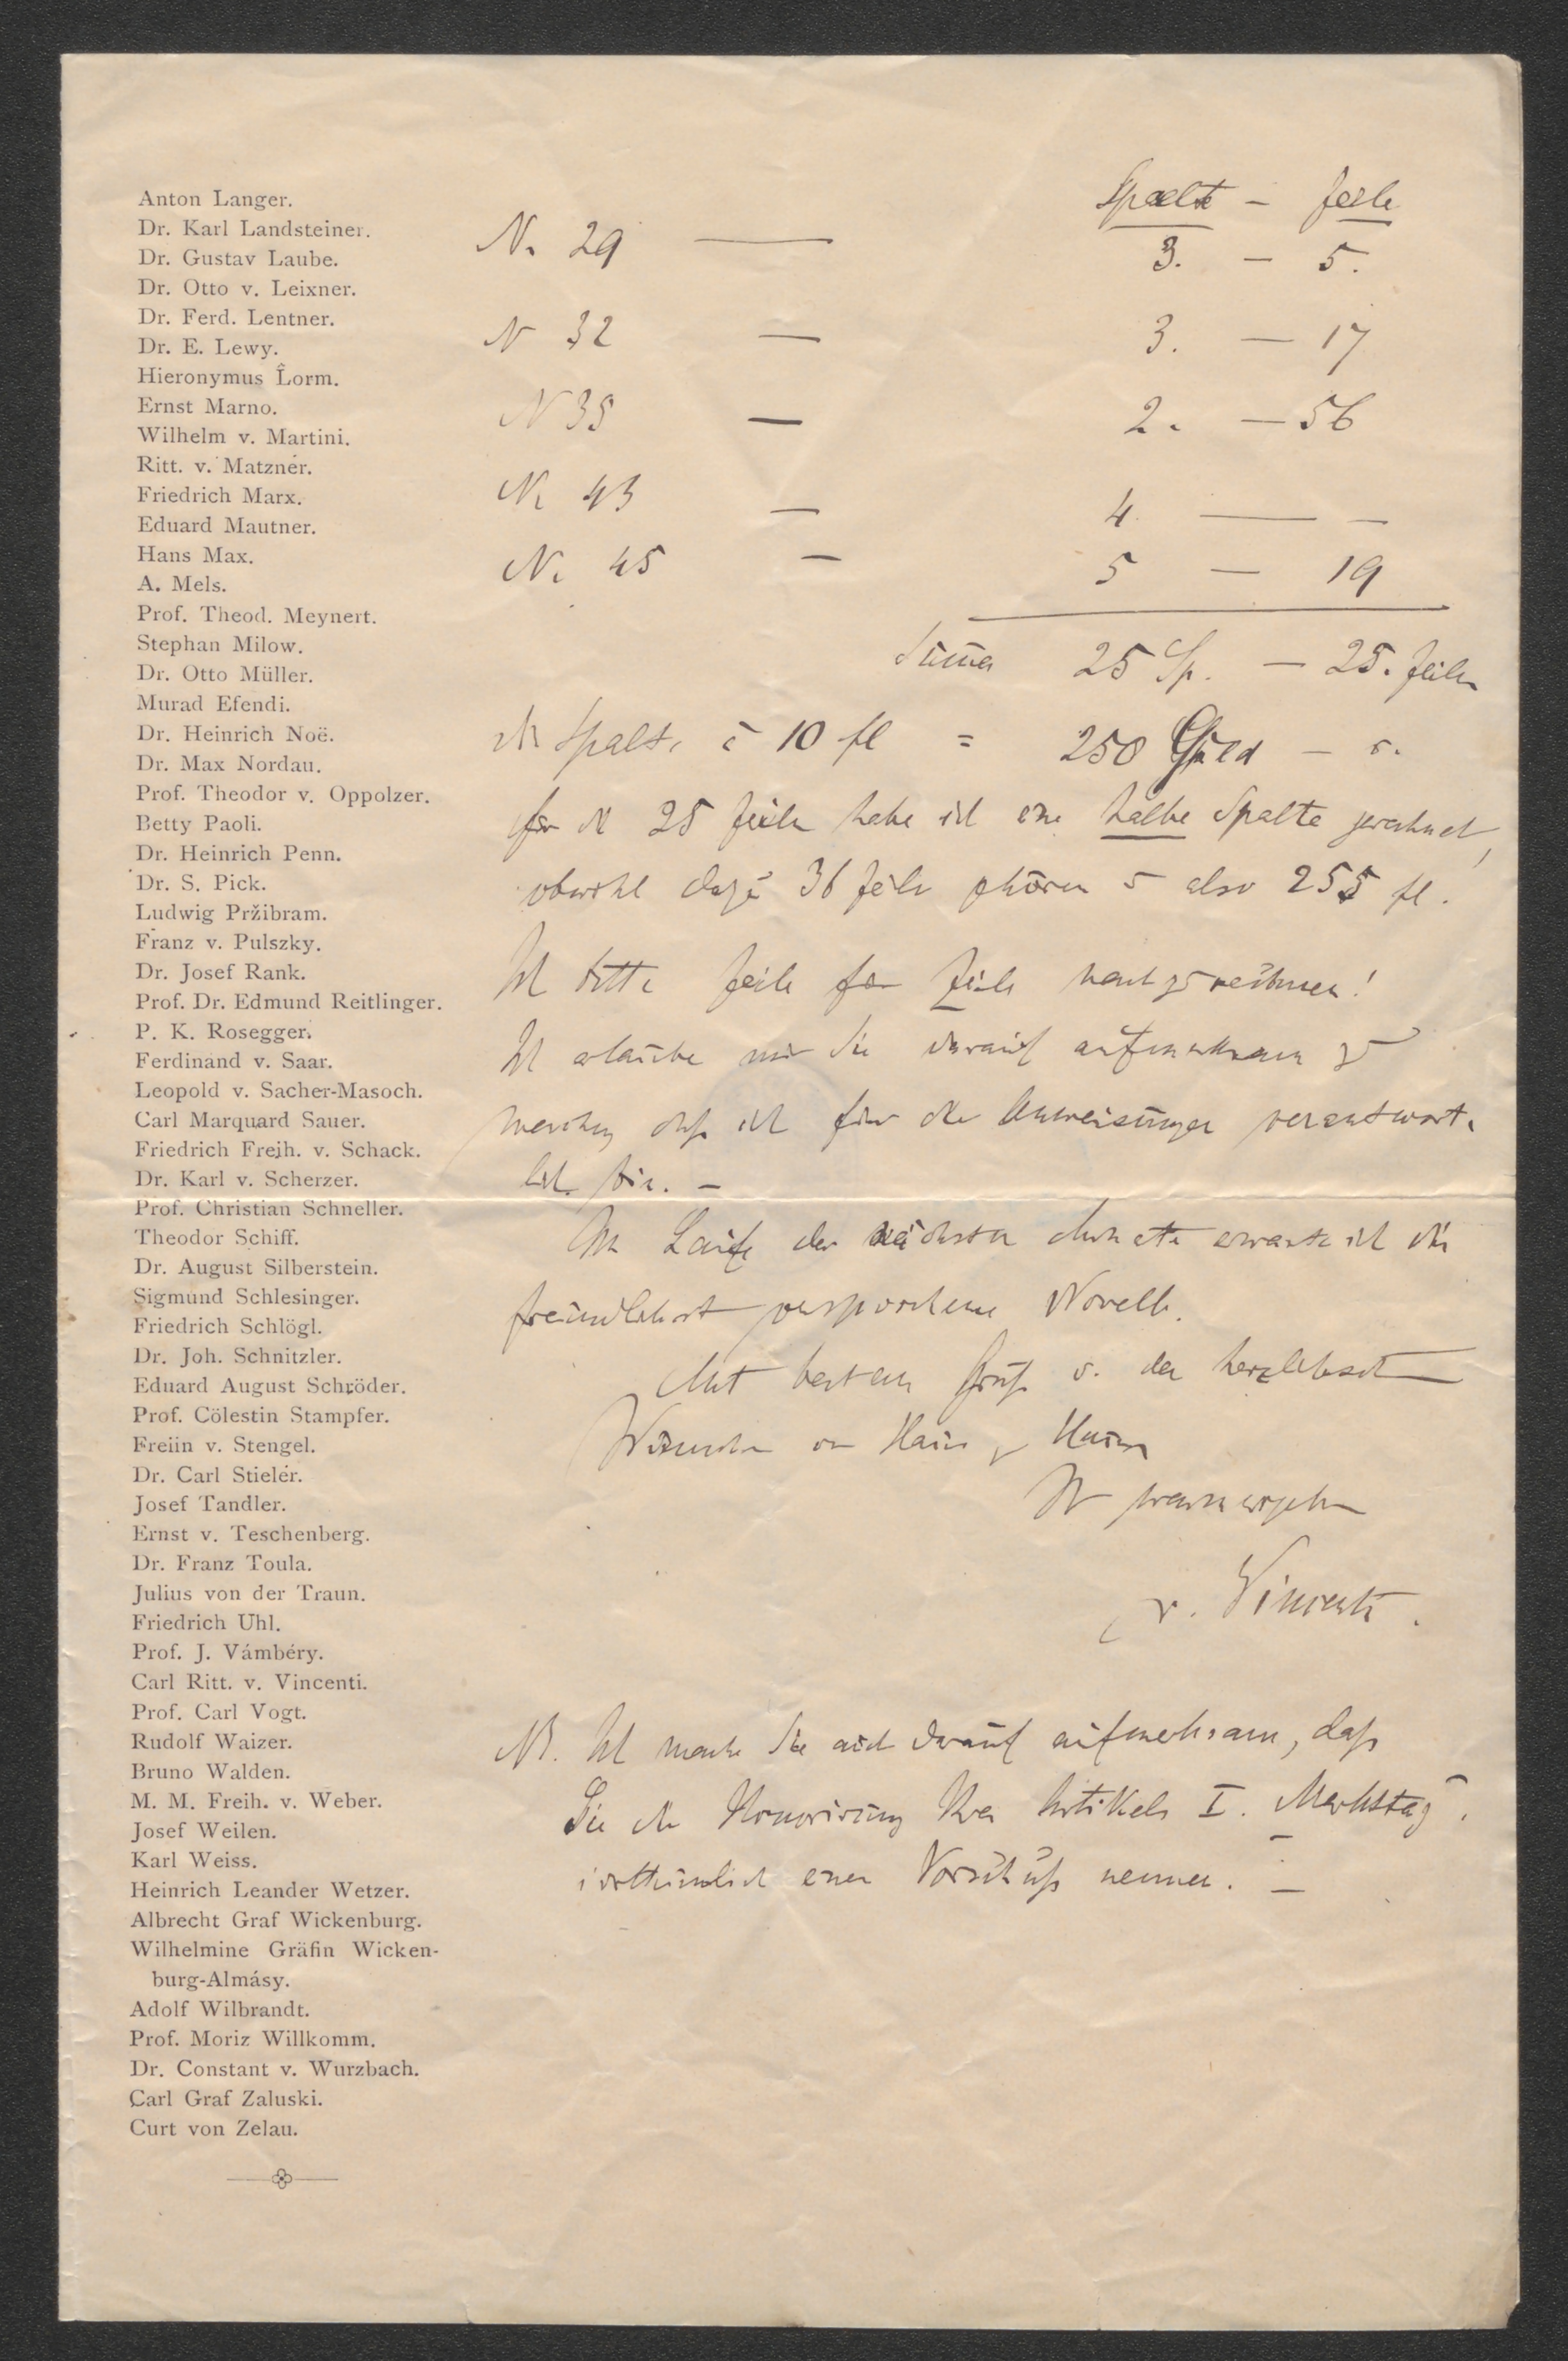 Anton Langer.
Dr. Karl Landsteiner.
Dr. Gustav Laube.
Dr. Otto v. Leixner.
Dr. Ferd. Lentner.
Dr. E. Lewy.
Hieronymus Lorm.
Ernst Marno.
Wilhelm v. Martini.
Ritt. v. Matznér.
Friedrich Marx.
Eduard Mautner.
Hans Max.
A. Mels.
Prof. Theod. Meynert.
Stephan Milow.
Dr. Otto Müller.
Murad Efendi.
Dr. Heinrich Noë.
Dr. Max Nordau.
Prof. Theodor v. Oppolzer.
Betty Paoli.
Dr. Heinrich Penn.
Dr. S. Pick.
Ludwig Pržibram.
Franz v. Pulszky.
Dr. Josef Rank.
Prof. Dr. Edmund Reitlinger.
P. K. Rosegger.
Ferdinand v. Saar.
Leopold v. Sacher-Masoch.
Carl Marquard Sauer.
Friedrich Freih. v. Schack.
Dr. Karl v. Scherzer.
Prof. Christian Schneller.
Theodor Schiff.
Dr. August Silberstein.
Sigmund Schlesinger.
Friedrich Schlögl.
Dr. Joh. Schnitzler.
Eduard August Schröder.
Prof. Cölestin Stampfer.
Freiin v. Stengel.
Dr. Carl Stieler.
Josef Tandler.
Ernst v. Teschenberg.
Dr. Franz Toula.
Julius von der Traun.
Friedrich Uhl.
Prof. J. Vámbéry.
Carl Ritt. v. Vincenti.
Prof. Carl Vogt.
Rudolf Waizer.
Bruno Walden.
M. M. Freih. v. Weber.
Josef Weilen.
Karl Weiss.
Heinrich Leander Wetzer.
Albrecht Graf Wickenburg.
Wilhelmine Gräfin Wicken-
burg-Almásy.
Adolf Wilbrandt.
Prof. Moriz Willkomm.
Dr. Constant v. Wurzbach.
Carl Graf Zaluski.
Curt von Zelau.
Spalte – Zeile
N. 29 — 3. – 5.
N 32 — 3. – 17
N 35 — 2. – 56
N. 43 — 4 — –
N. 45 – 5 – 19
Suma 25 Sp. – 25. Zeilen
die Spalte à 10 fl = 250 Guld –
für die 25 Zeilen habe ich eine halbe Spalte gerechnet,
obwohl dazu 36 Zeilen gehören – also 255 fl.
Ich bitte Zeile für Zeile nachzurechnen!
Ich erlaube mir Sie darauf aufmerksam zu
machen, daß ich für die Anweisungen verantwort-
lich bin. –
Im Laufe der nächsten Monate erwarte ich die
freundlichst versprochene Novelle.
Mit bestem Gruß u. den herzlichsten
Wünschen von Haus zu Haus
Ihr
v. Vincenti.
NB. Ich mache Sie auch darauf aufmerksam, daß
Sie die Honorirung Ihres Artikels I.
irrthümlich einen Vorschuß nennen. –